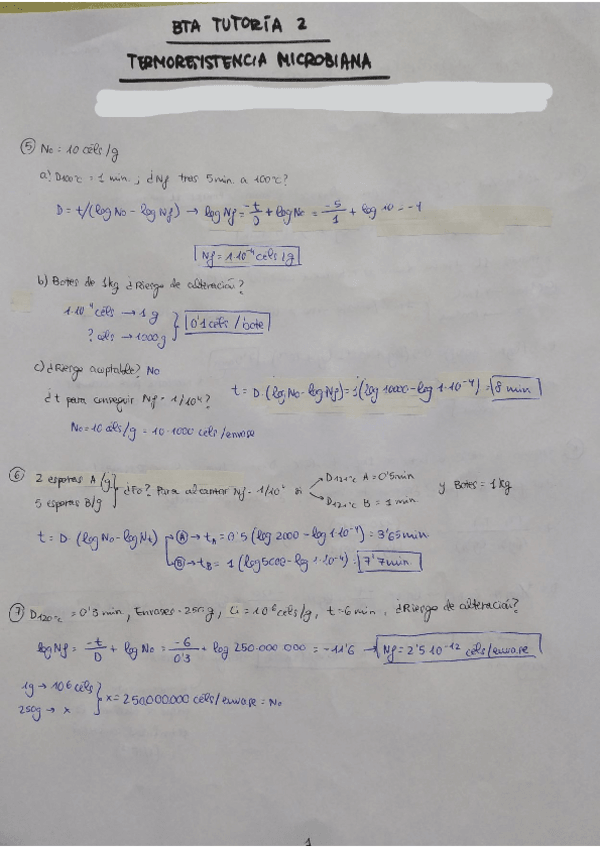 BTA TUTORÍA 2
TERMORESISTENCIA MICROBIANA
⑤ No = 10 céls/g
a) D100ºC = 1 min. ; ¿Nf tras 5min. a 100ºC?
D = t/(log No - log Nf) → log Nf = -t/D + log No = -5/1 + log 10 = -4
Nf = 1·10⁻⁴ céls/g
b) Botes de 1kg ¿Riesgo de alteración?
1·10⁻⁴ céls → 1 g
? céls → 1000 g } 0'1 céls/bote
c) ¿Riesgo aceptable? No
¿t para conseguir Nf = 1/10⁴?
t = D·(log No - log Nf) = 1(log 10000 - log 1·10⁻⁴) = 8 min
No = 10 céls/g = 10·1000 céls/envase
⑥ 2 esporas A/g
5 esporas B/g } ¿Fo? Para alcanzar Nf = si → D121ºC A = 0'5min y Botes = 1kg
→ D121ºC B = 1 min
t = D·(log No - log Nt) → Ⓐ → tA = 0'5 (log 2000 - log 1·10⁻⁴) = 3'65min
→ Ⓑ → tB = 1 (log 5000 - log 1·10⁻⁴) = 7'7min
⑦ D120ºC = 0'3 min, Envases = 250g, Ci = 10⁶ céls/g, t = 6 min, ¿Riesgo de alteración?
log Nf = -t/D + log No = -6/0'3 + log 250.000.000 = -11'6 → Nf = 2'5·10⁻¹² céls/envase
1g → 10⁶ céls
250g → x } x = 250.000.000 céls/envase = No
1